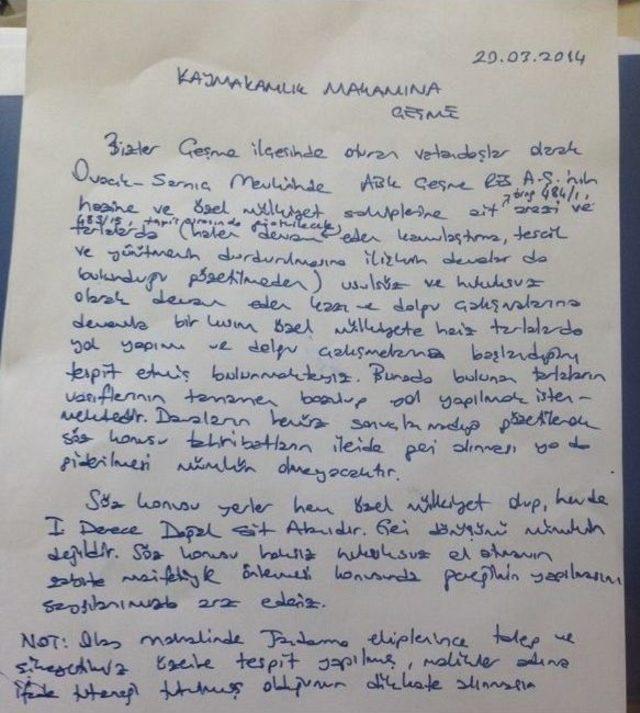 29.03.2014
KAYMAKAMLIK MAKAMINA
ÇEŞME
Bizler Çeşme ilçesinde oturan vatandaşlar olarak
Ovacık-Sarnıç Mevkiinde ABK Çeşme RES A.Ş.'nin
hazine ve özel mülkiyet sahiplerine ait arazi ve
484/1,
483/15,
tarlalarda (halen devam eden kamulaştırma, tescil
ve yürütmenin durdurulmasına ilişkin davalar da
bulunduğu gözetilmeden) usulsüz ve hukuksuz
olarak devam eden kazı ve dolgu çalışmalarına
devamla bir kısım özel mülkiyete haiz tarlalarda
yol yapımı ve dolgu çalışmalarına başlandığını
tespit etmiş bulunmaktayız. Burada bulunan tarlaların
vasıflarının tamamen bozulup yol yapılmak isten-
mektedir. Davaların henüz sonuçlanmadığı gözetilerek
söz konusu tahribatların ileride geri alınması ya da
giderilmesi mümkün olmayacaktır.
Söz konusu yerler hem özel mülkiyet olup, hem de
I. Derece Doğal Sit Alanıdır. Geri dönüşümü mümkün
değildir. Söz konusu haksız hukuksuz el atmanın
zabıta marifetiyle önlemesi konusunda gereğinin yapılmasını
saygılarımızla arz ederiz.
NOT: Olay mahalinde Jandarma ekiplerince talep ve
şikayetimiz üzerine tespit yapılmış, malikler adına
ifade tutanağı tutulmuş olduğunun dikkate alınmasını